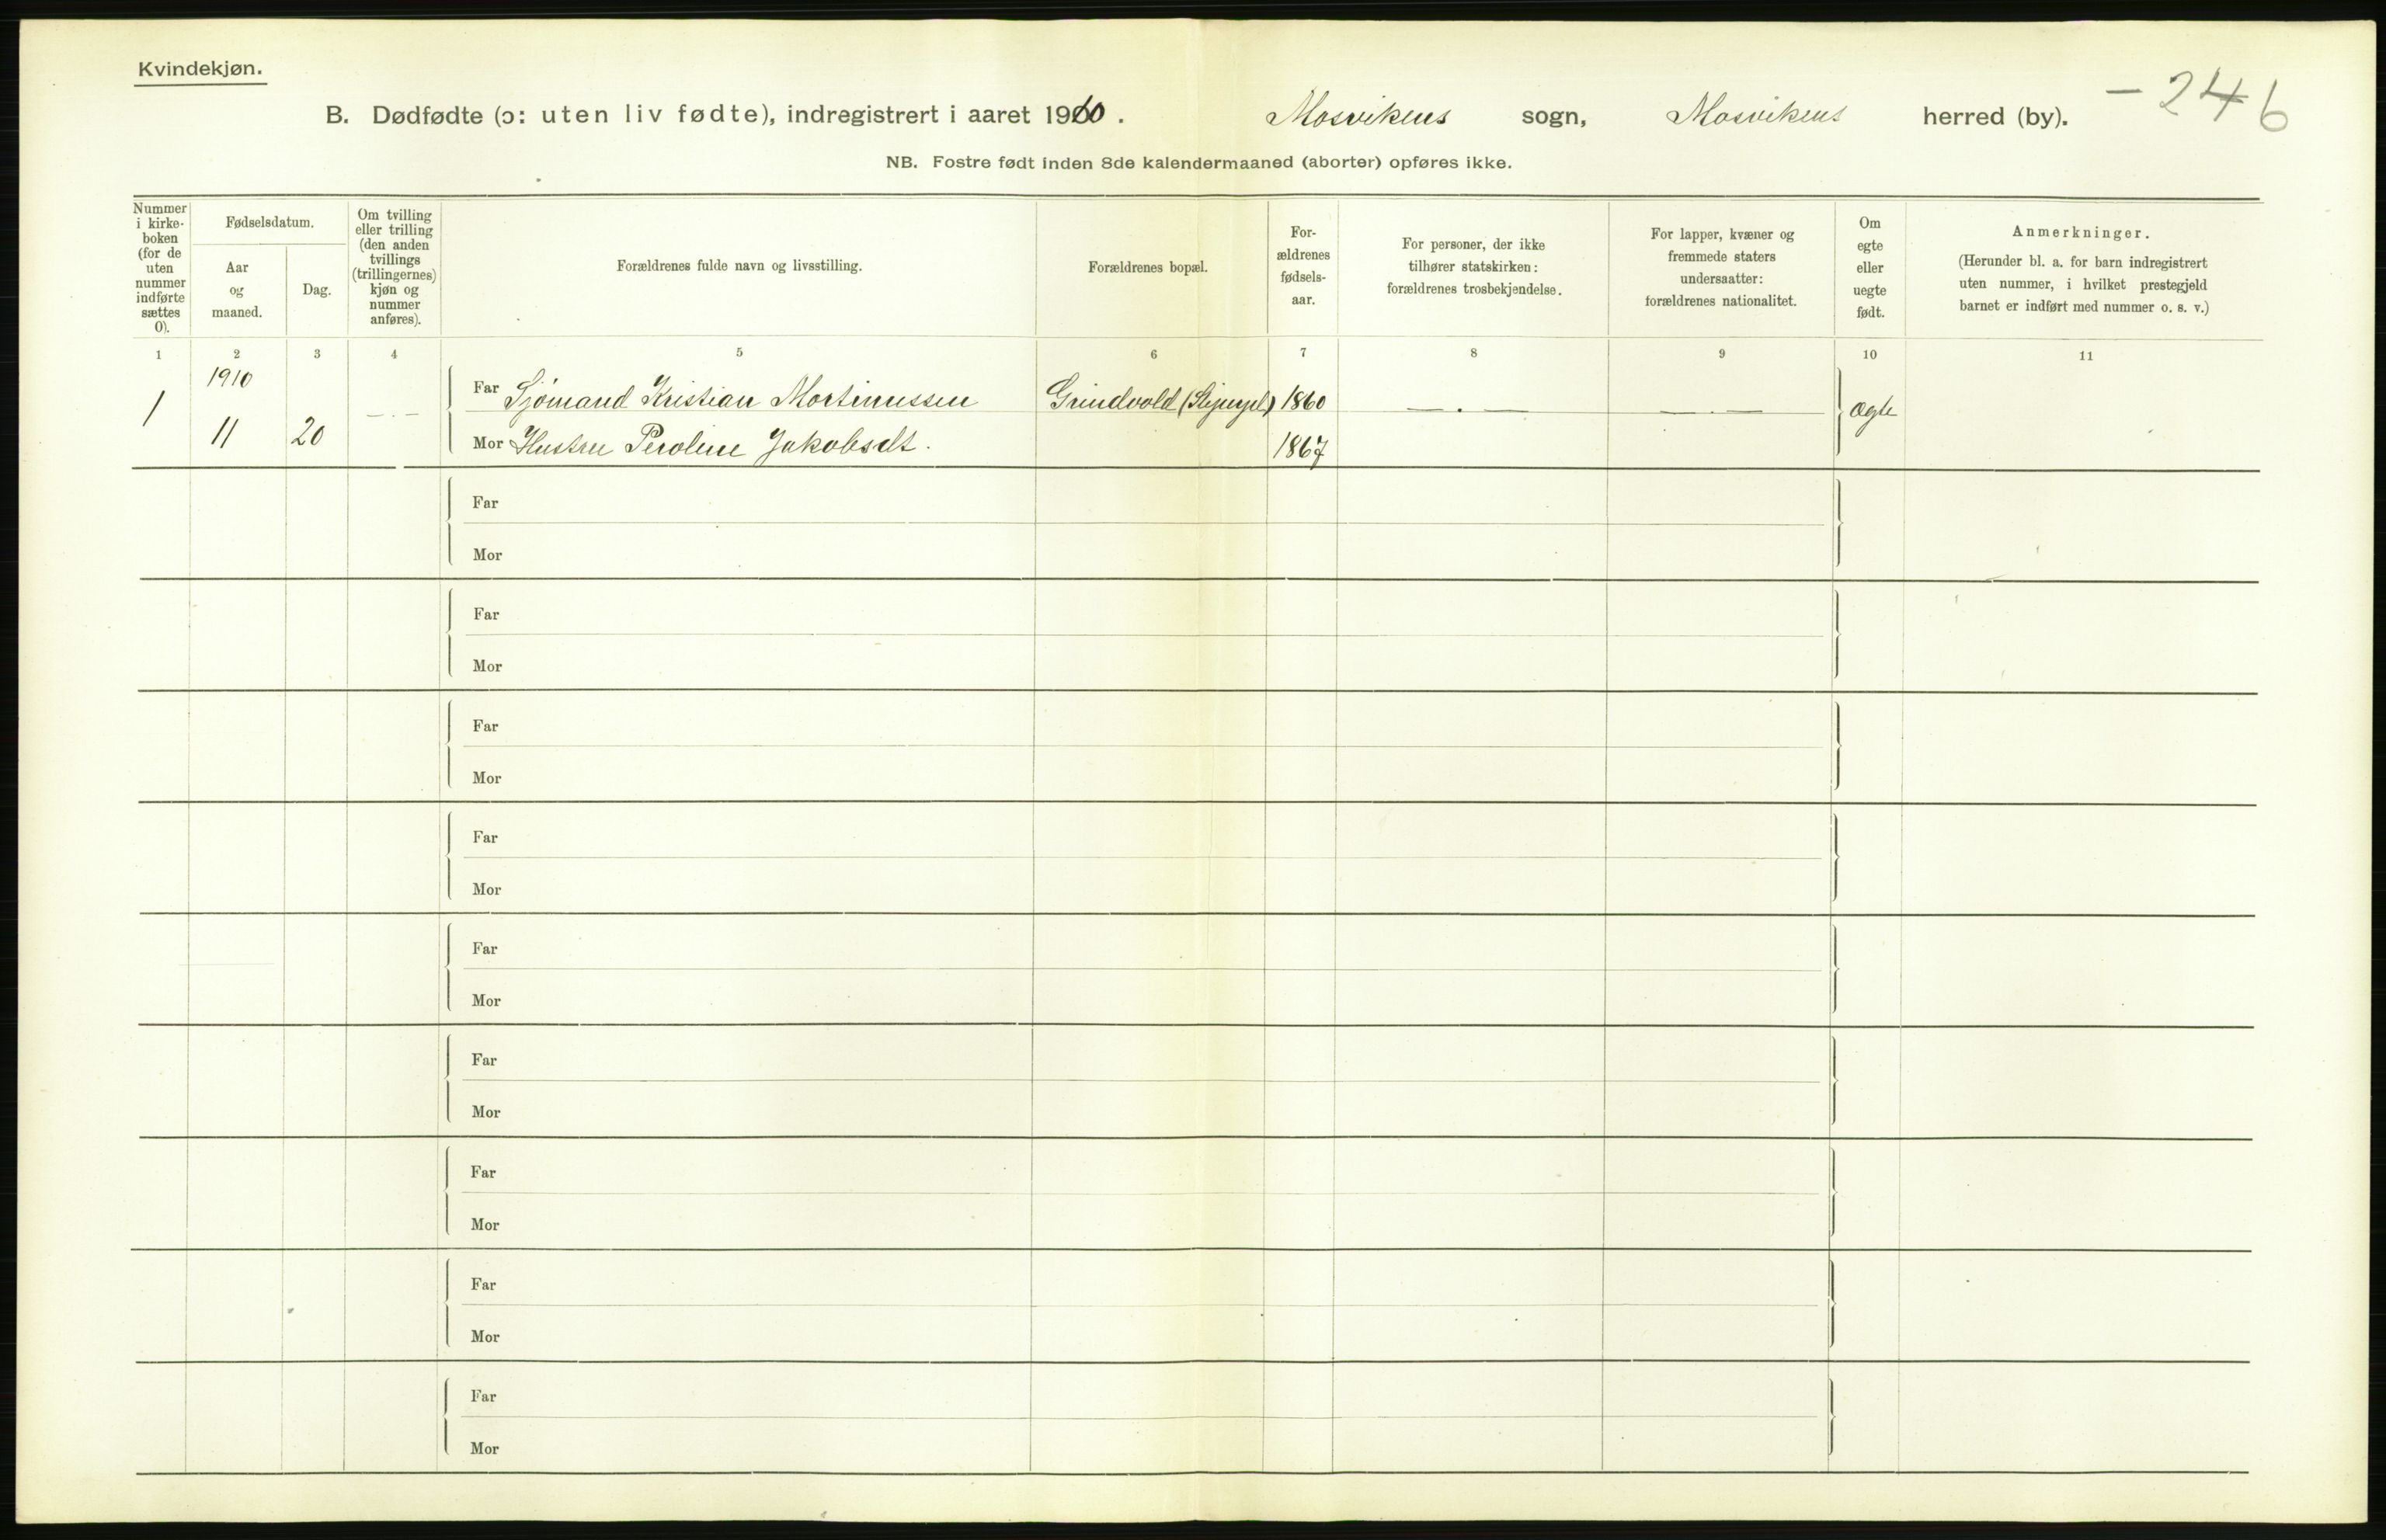 Kvindekjøn.
B. Dødfødte (ɔ: uten liv fødte), indregistrert i aaret 1910. Mosvikens sogn, Mosvikens herred (by). – 246
NB. Fostre født inden 8de kalendermaaned (aborter) opføres ikke.
Nummer i kirke-boken (for de uten nummer indførte sættes 0).
Fødselsdatum.
Aar og maaned.
Dag.
Om tvilling eller trilling (den anden tvillings (trillingernes) kjøn og nummer anføres).
Forældrenes fulde navn og livsstilling.
Forældrenes bopæl.
For-ældrenes fødsels-aar.
For personer, der ikke tilhører statskirken: forældrenes trosbekjendelse.
For lapper, kvæner og fremmede staters undersaatter: forældrenes nationalitet.
Om egte eller uegte født.
Anmerkninger.
(Herunder bl. a. for barn indregistrert uten nummer, i hvilket prestegjeld barnet er indført med nummer o. s. v.)
1 2 3 4 5 6 7 8 9 10 11
1910
1 11 20 —.—
Far Sjømand Kristian Martinussen Grindvold 1860 —.— —.— Ægte
Mor Hustru Peroline Jakobsdt. 1867
Far
Mor
Far
Mor
Far
Mor
Far
Mor
Far
Mor
Far
Mor
Far
Mor
Far
Mor
Far
Mor